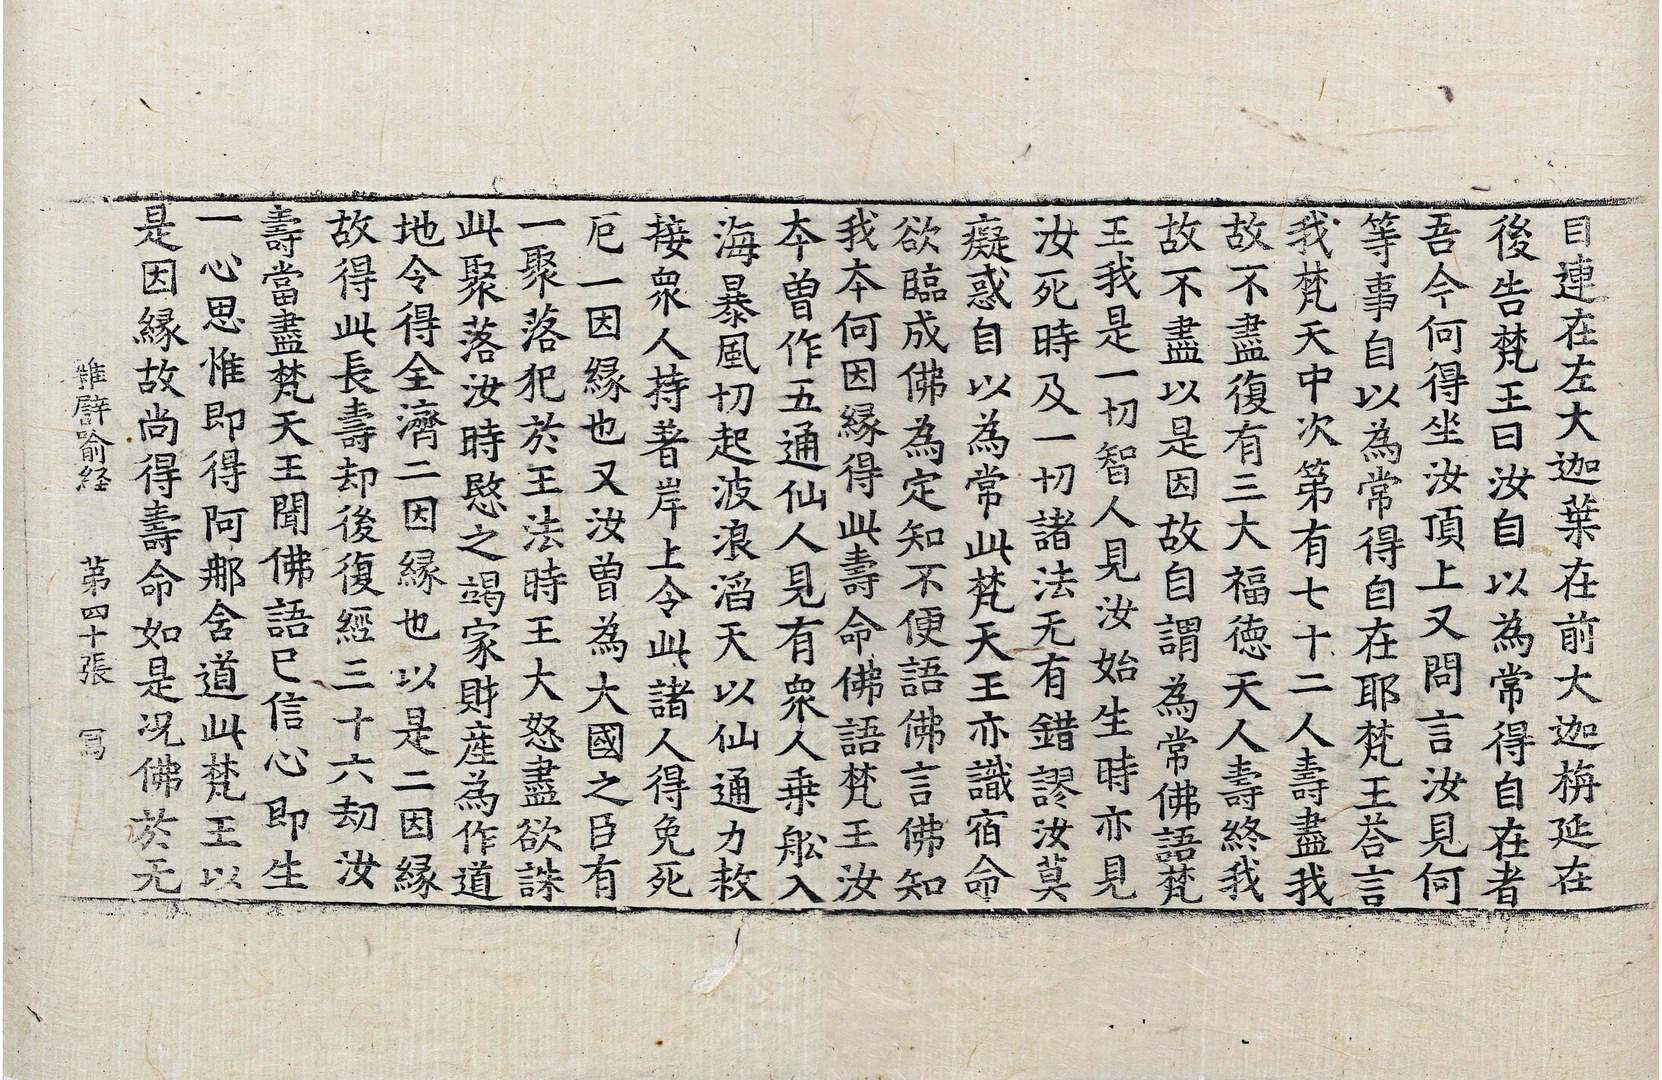 目連在左大迦葉在前大迦栴延在
後告梵王曰汝自以為常得自在者
吾今何得坐汝頂上又問言汝見何
等事自以為常得自在耶梵王荅言
我梵天中次第有七十二人壽盡我
故不盡復有三大福徳天人壽終我
故不盡以是因故自謂為常佛語梵
王我是一切智人見汝始生時亦見
汝死時及一切諸法无有錯謬汝莫
癡惑自以為常此梵天王亦識宿命
欲臨成佛為定知不便語佛言佛知
我夲何因縁得此壽命佛語梵王汝
夲曽作五通仙人見有衆人乗舩入
海暴風切起波浪滔天以仙通力救
接衆人持著岸上令此諸人得免死
厄一因縁也又汝曽為大國之臣有
一聚落犯於王法時王大怒盡欲誅
此聚落汝時愍之竭家財産為作道
地令得全濟二因縁也以是二因縁
故得此長壽却後復經三十六劫汝
壽當盡梵天王聞佛語已信心即生
一心思惟即得阿那含道此梵王以
是因縁故尚得壽命如是况佛於无
雜譬喻経 第四十張 冩